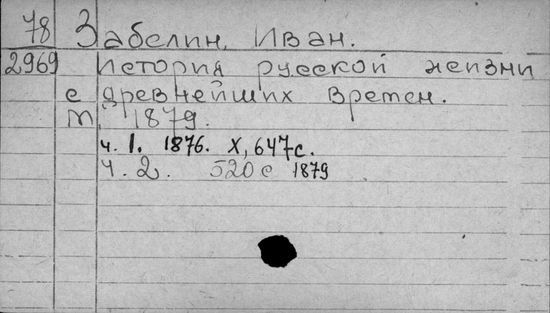 78 Забелин, Иван.
2969 История русской жизни
с древнейших времен.
М, 1879.
ч. 1. 1876. X, 647с.
Ч. 2. 520 с 1879